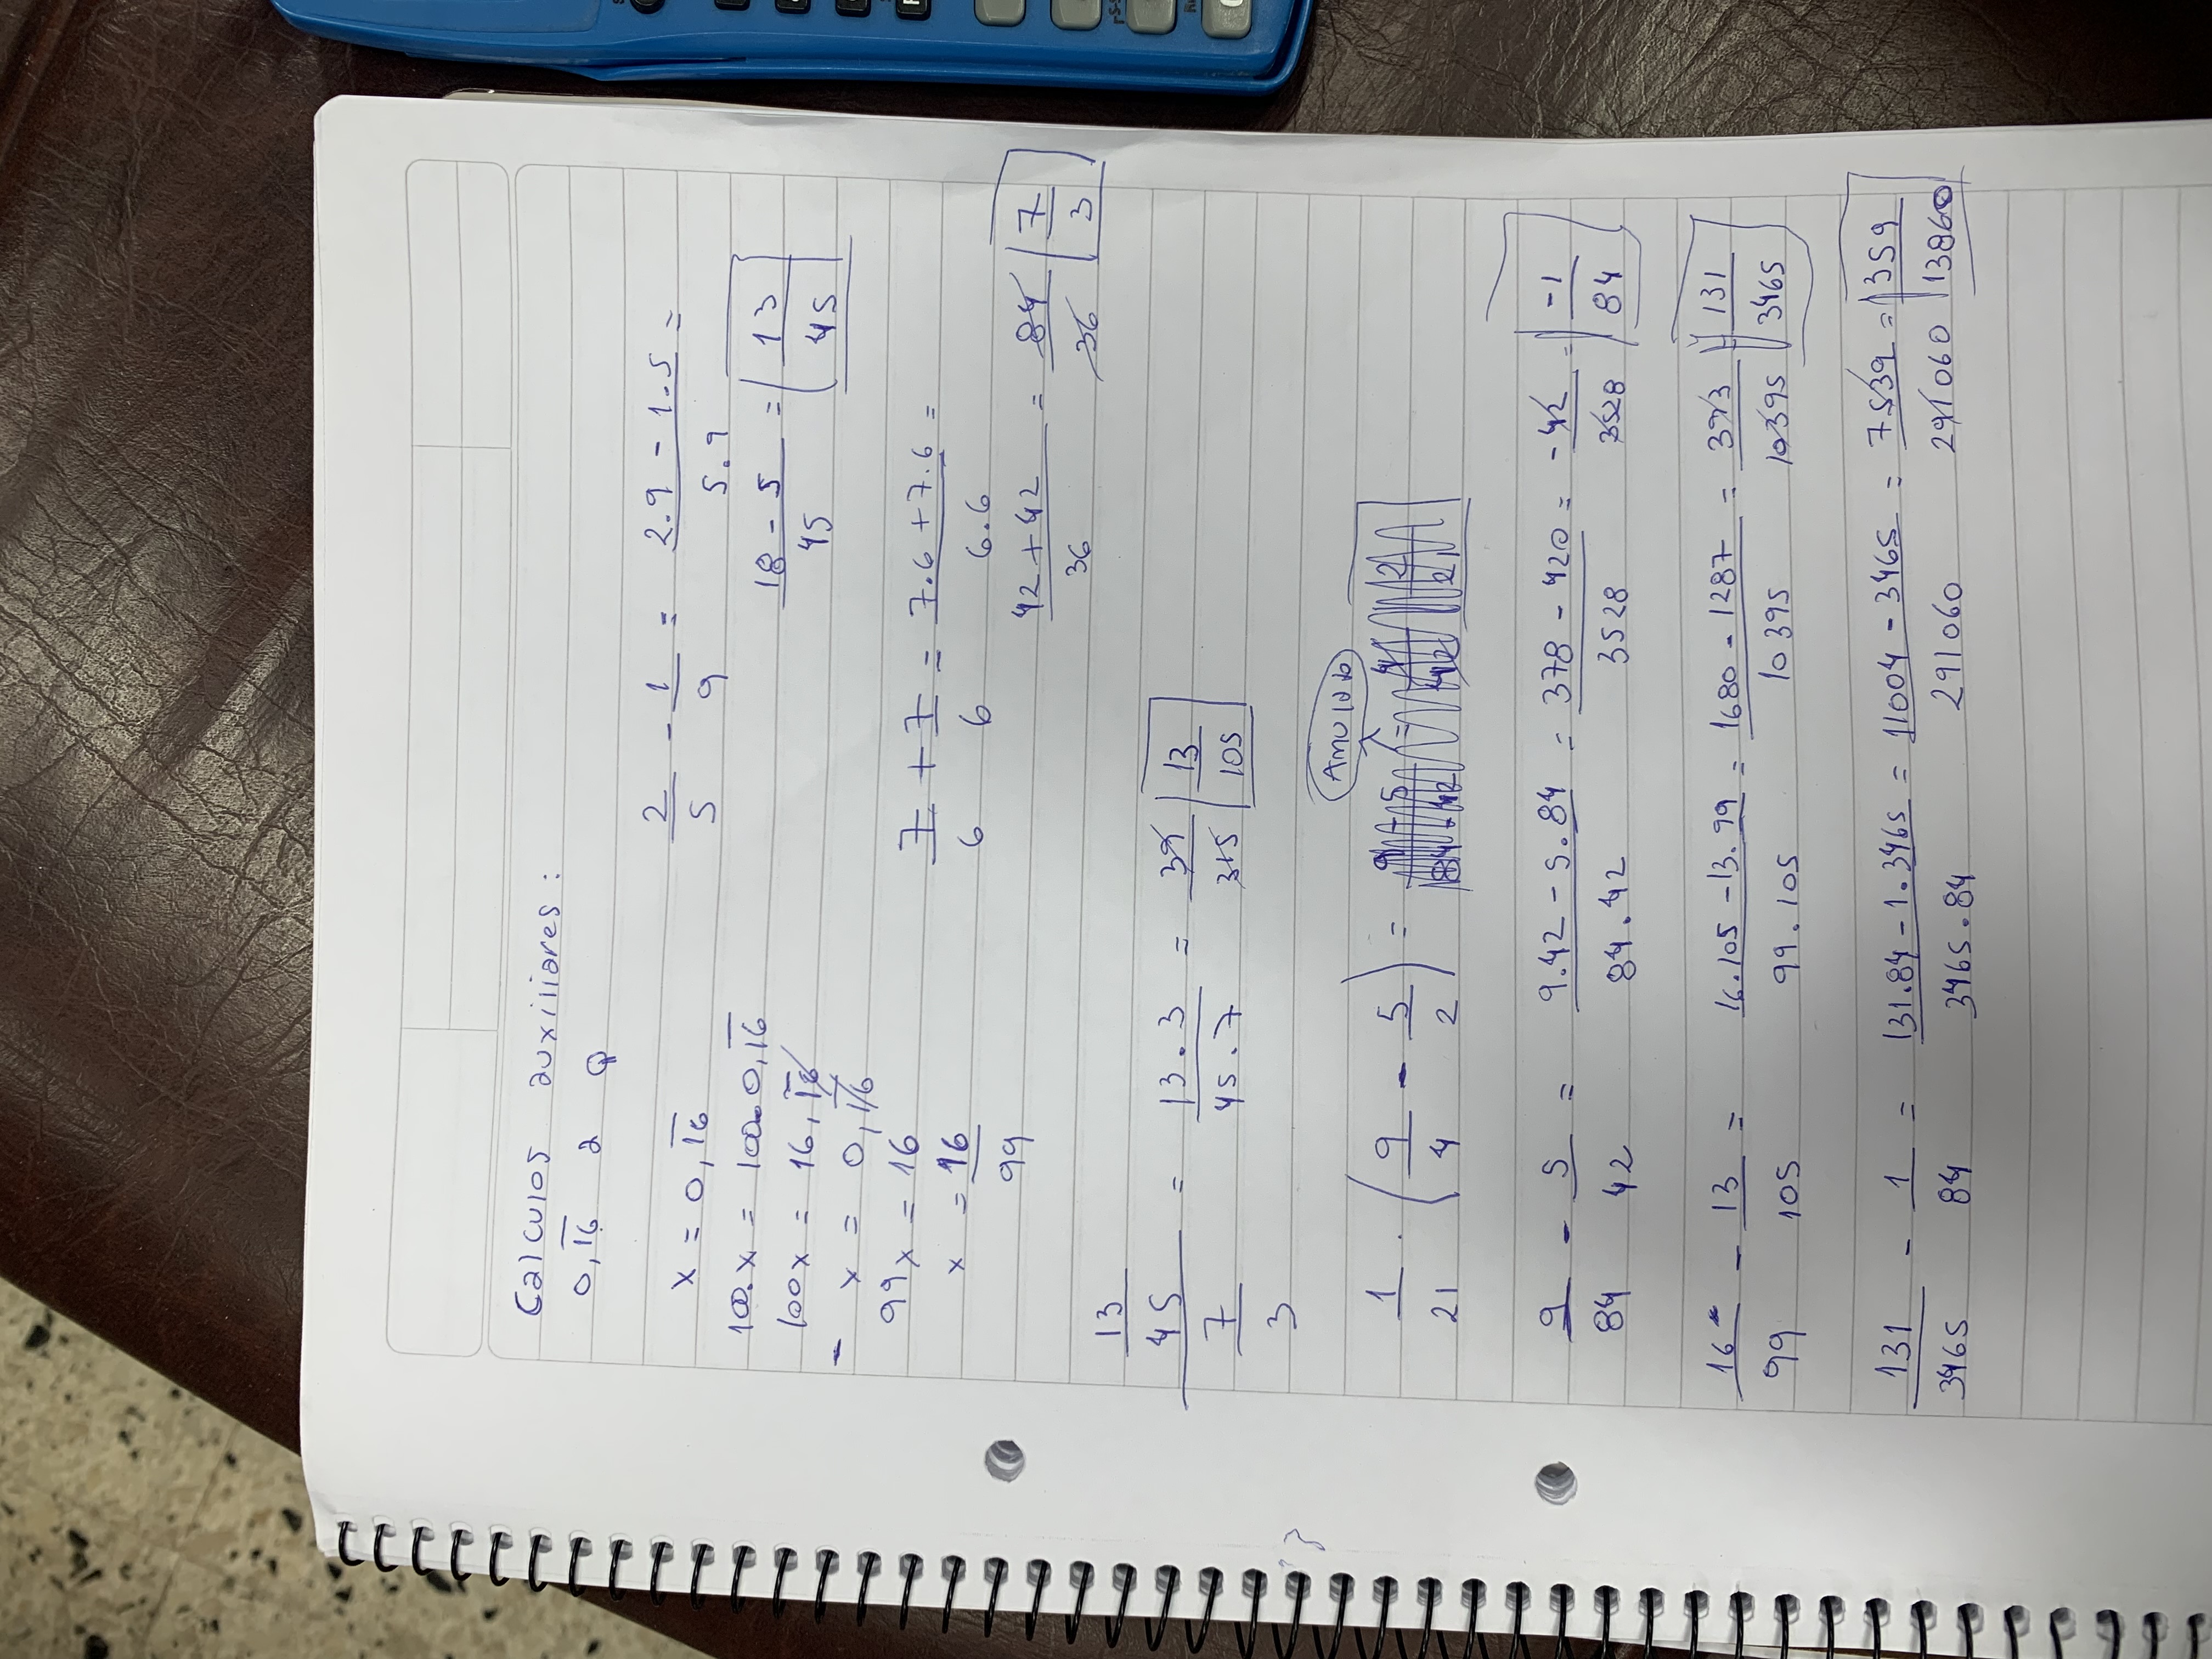 Calculos auxiliares :
0,1̅6̅ a Q
x = 0,1̅6̅
100.x = 100.0,1̅6̅
100x = 16,1̅6̅
- x = 0,1̅6̅
99x = 16
x = 16/99
2/5 - 1/9 = (2.9 - 1.5)/(5.9) =
(18 - 5)/45 = 13/45
7/6 + 7/6 = (7.6 + 7.6)/(6.6) =
(42 + 42)/36 = 84/36 7/3
(13/45)/(7/3) = (13.3)/(45.7) = 39/315 13/105
Anulado
1/21 . (9/4 - 5/2) =
9/84 - 5/42 = (9.42 - 5.84)/(84.42) = (378 - 420)/3528 = -42/3528 = -1/84
16/99 - 13/105 = (16.105 - 13.99)/(99.105) = (1680 - 1287)/10395 = 393/10395 = 131/3465
131/3465 - 1/84 = (131.84 - 1.3465)/(3465.84) = (11004 - 3465)/291060 = 7539/291060 = 359/13860